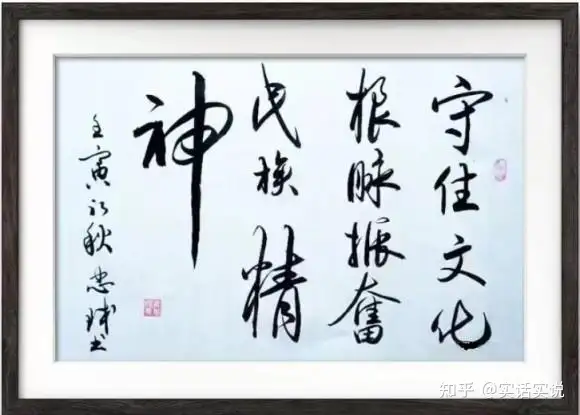 守住文化
根脉振奋
民族精
神
壬寅初秋忠斌书
知乎 @实话实说